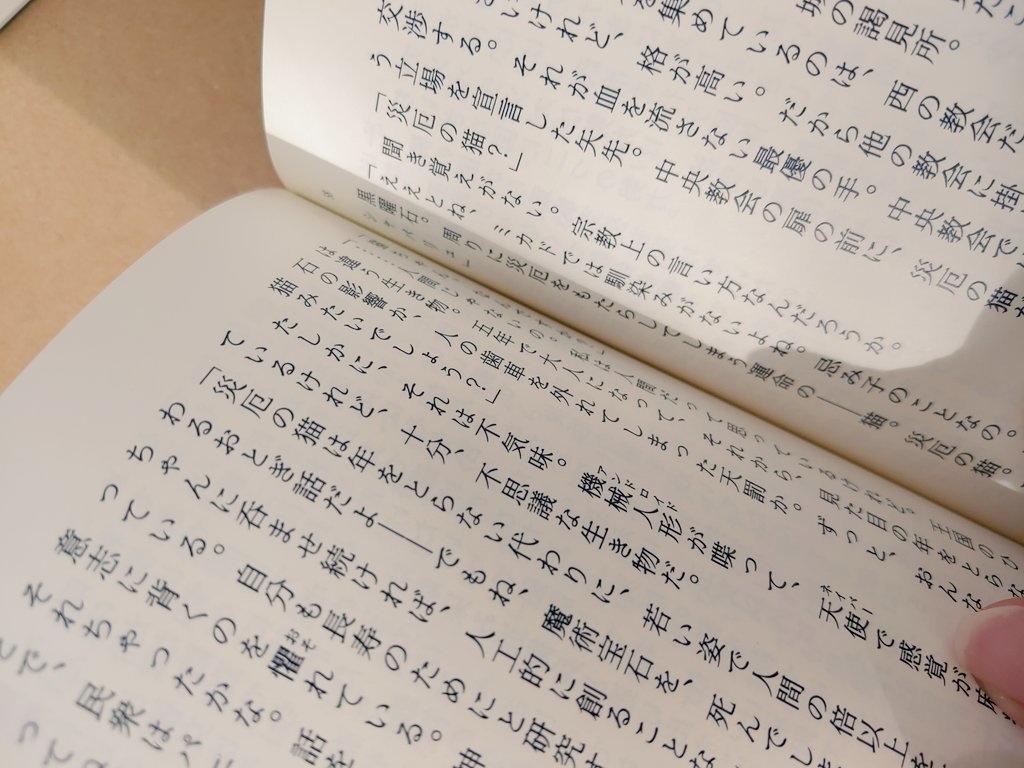 城の謁見所。
を集めているのは、西の教会だ
いけれど、格が高い。だから他の教会に掛
交渉する。それが血を流さない最優の手。中央教会で
う立場を宣言した矢先。中央教会の扉の前に、災厄の猫
「災厄の猫？」
聞き覚えがない。宗教上の言い方なんだろうか。
「ええとね、ミカドでは馴染みがないよね。忌み子のことなの。
黒曜石。周りに災厄をもたらしてしまう運命の――猫。災厄の猫。
は違う生き物。五年で大人になって、それから、見た目の年をとらな
石の影響か、人の歯車を外れてしまった天罰か。ずっと、おんな
猫みたいでしょう？」
たしかに、それは不気味。機械人形が喋って、天使で感覚が麻
アンドロイド
ネイバー
ているけれど、十分、不思議な生き物だ。
「災厄の猫は年をとらない代わりに、若い姿で人間の倍以上を
わるおとぎ話だよ――でもね、魔術宝石を、死んでしま
ちゃんに呑ませ続ければ、人工的に創ることな
っている。自分も長寿のためにと研究す
意志に背くのを懼れている。神
おそ
それちゃったかな。話を
とで、民衆はパ
ってね